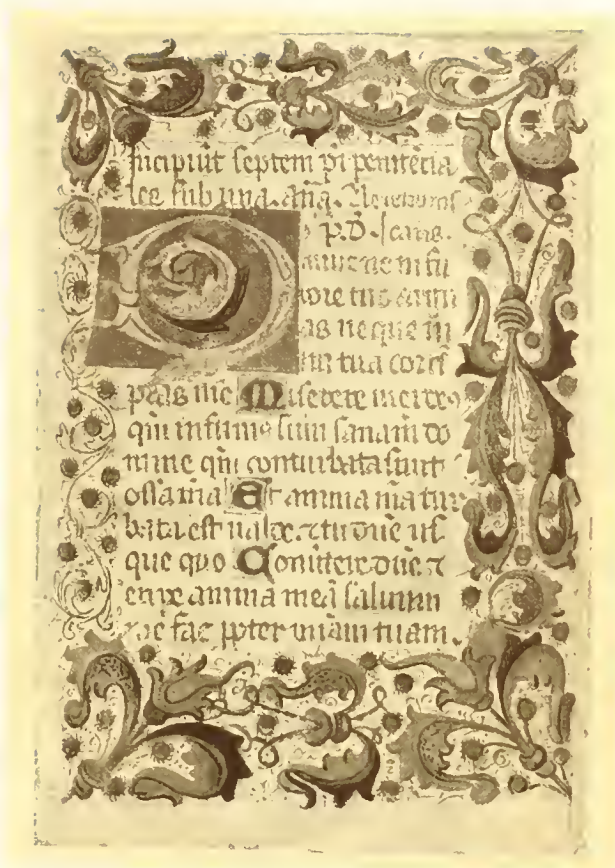 Incipiut septem pi penitecia
les sub una. ana. Ne
D p.D. scans.
in fu
rore tuo
as neque in
ira tua cores
peas me Miserere mei
qm infirmus sum sana m do
mine qm conturbata sunt
ossa ma Et anima ma tur
bata est ualde. z tu dne us
que quo Conuertere dne. z
eripe anima mea saluum
me fac ppter miam tuam.